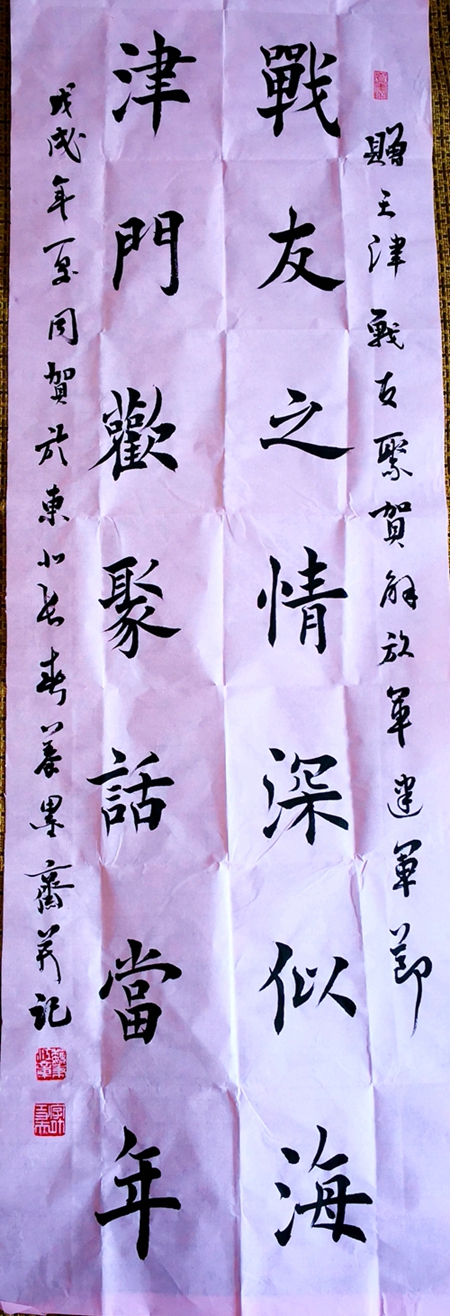 贈天津戰友聚賀解放軍建軍節
戰友之情深似海
津門歡聚話當年
戊戌年夏同賀於東北長春墨齋并記